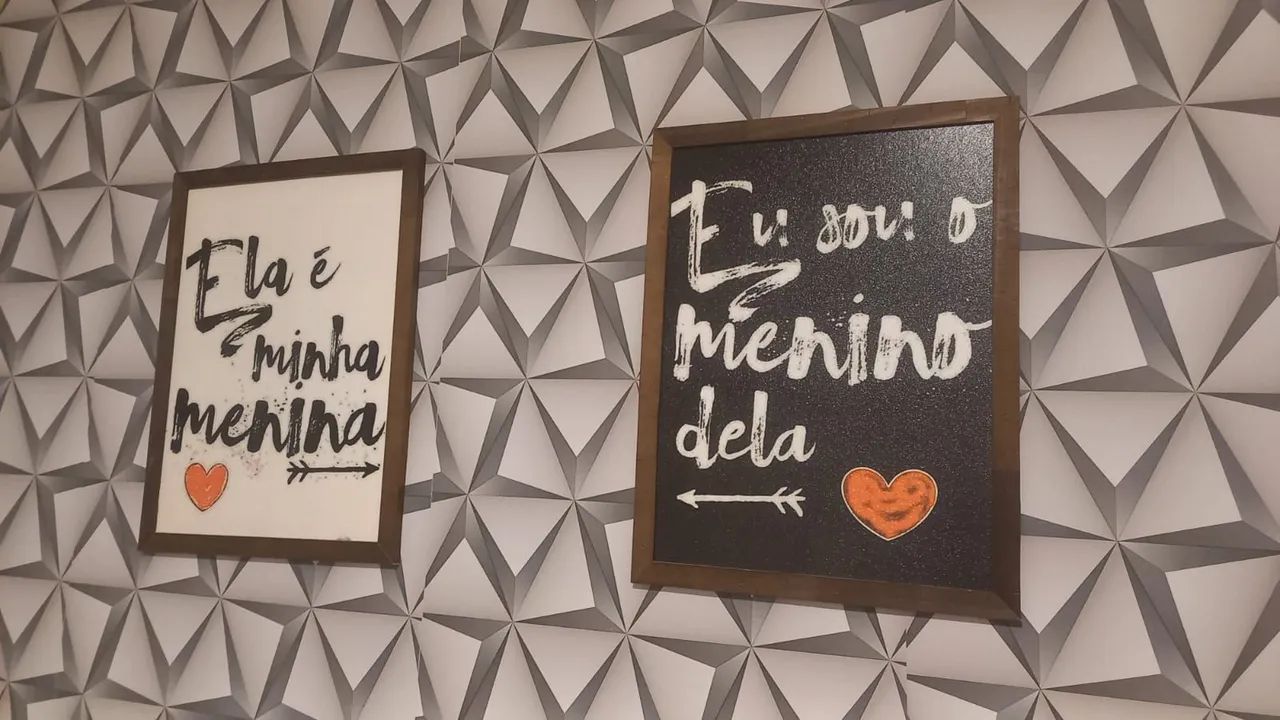 Ela é
minha
menina
Eu sou o
menino
dela